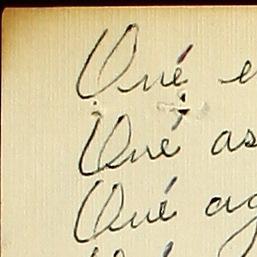 Qué e
Qué as
Qué ag